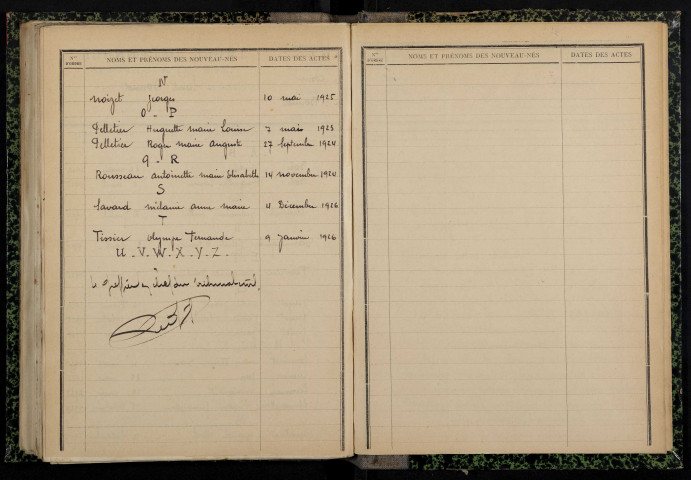 Nos D'ORDRE NOMS ET PRÉNOMS DES NOUVEAU-NÉS DATES DES ACTES
N
Noizet Georges 10 mai 1925
O - P
Pelletier Huguette marie Louise 7 mars 1923
Pelletier Roger marie Auguste 27 Septembre 1924
Q - R
Rousseau antoinette marie Elisabeth 14 novembre 1924
S
Savard mélanie anne marie 4 Décembre 1926
T
Tissier olympe Fernande 9 Janvier 1926
U - V - W - X - Y - Z -
le greffier en chef du tribunal civil,
Nos D'ORDRE NOMS ET PRÉNOMS DES NOUVEAU-NÉS DATES DES ACTES